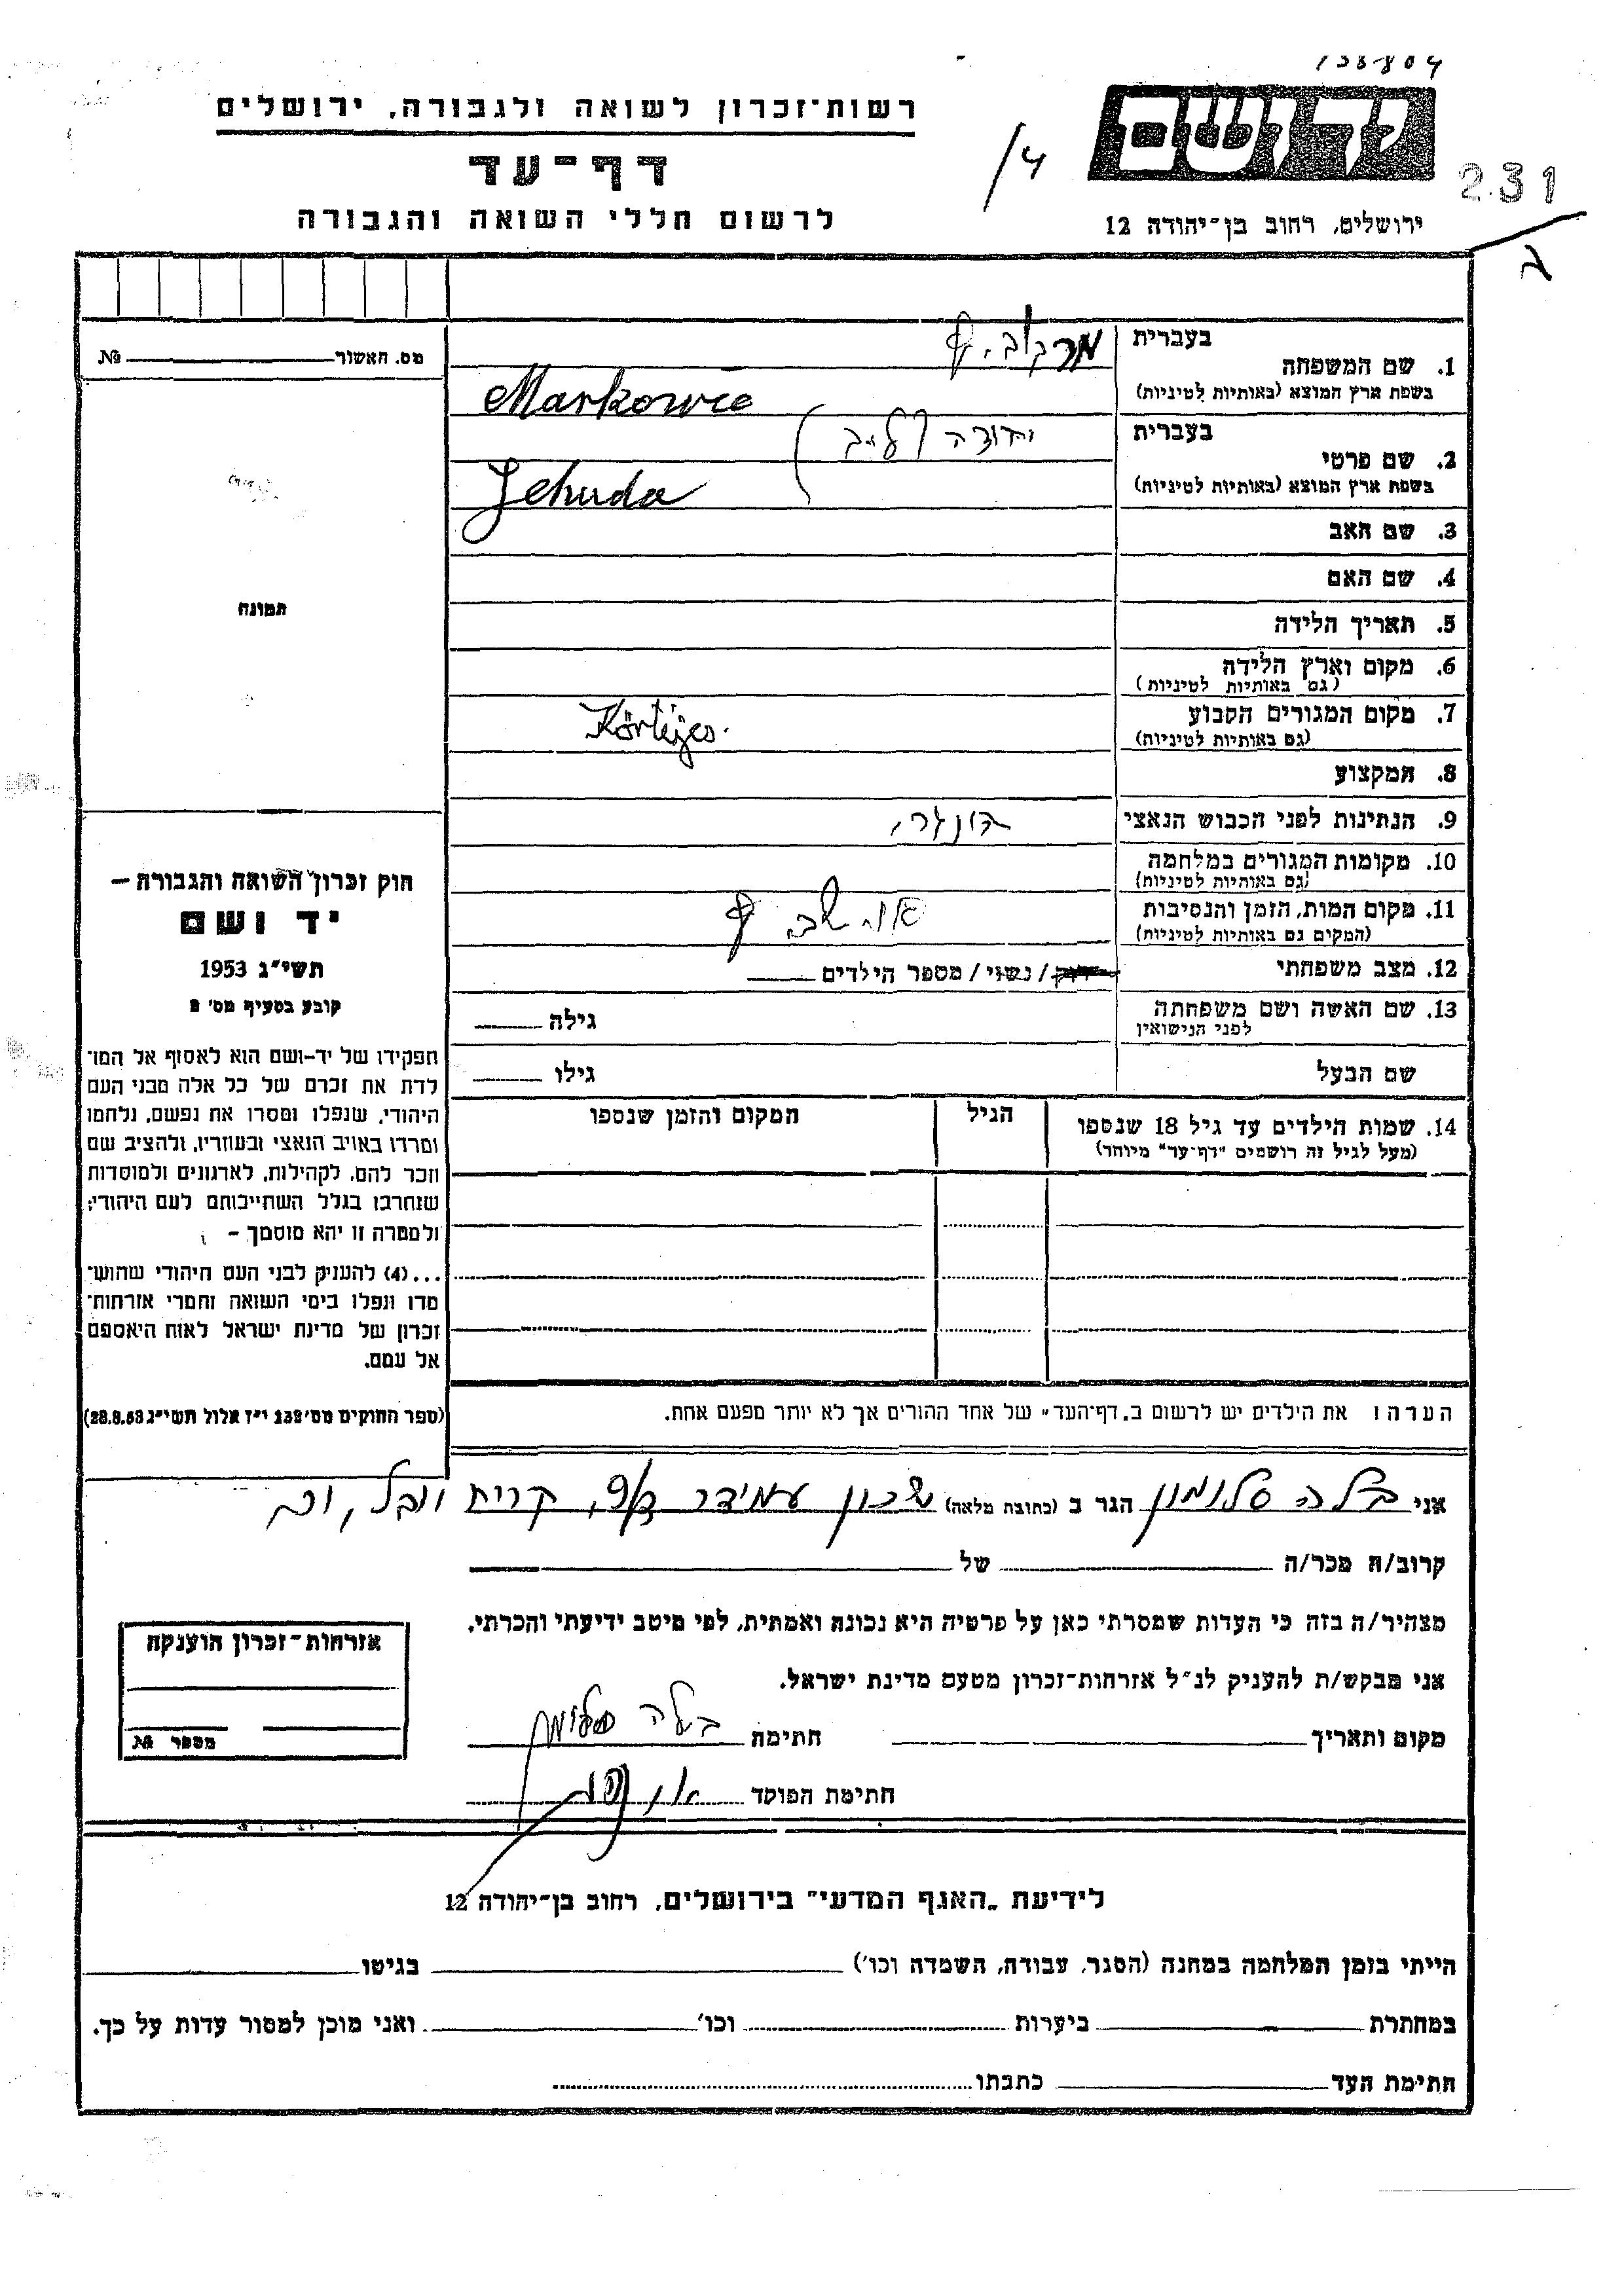 138804
רשות-זכרון לשואה ולגבורה, ירושלים
יד ושם
דף-עד
231
לרשום חללי השואה והגבורה
ירושלים, רחוב בן-יהודה 12
בעברית
מרקוביץ
1. שם המשפחה
בשפת ארץ המוצא (באותיות לטיניות)
Markowic
מס. האשור № 
בעברית
יהודה לייב
2. שם פרטי
בשפת ארץ המוצא (באותיות לטיניות)
Jehuda
3. שם האב
4. שם האם
תמונה
5. תאריך הלידה
6. מקום וארץ הלידה
(גם באותיות לטיניות)
7. מקום המגורים הקבוע
(גם באותיות לטיניות)
8. המקצוע
9. הנתינות לפני הכבוש הנאצי
הונגרי
10. מקומות המגורים במלחמה
(גם באותיות לטיניות)
11. מקום המות, הזמן והנסיבות
(המקום גם באותיות לטיניות)
אושביץ
12. מצב משפחתי
רווק / נשוי / מספר הילדים
13. שם האשה ושם משפחתה
לפני הנישואין
גילה
שם הבעל
גילו
14. שמות הילדים עד גיל 18 שנספו
(מעל לגיל זה רושמים "דף-עד" מיוחד)
הגיל
המקום והזמן שנספו
הערה: את הילדים יש לרשום ב"דף-העד" של אחד ההורים אך לא יותר מפעם אחת.
חוק זכרון השואה והגבורה –
יד ושם
תשי"ג 1953
קובע בסעיף מס' 2
תפקידו של יד-ושם הוא לאסוף אל המו־
לדת את זכרם של כל אלה מבני העם
היהודי, שנפלו ומסרו את נפשם, נלחמו
ומרדו באויב הנאצי ובעוזריו, ולהציב שם
וזכר להם, לקהילות, לארגונים ולמוסדות
שנחרבו בגלל השתייכותם לעם היהודי;
ולמטרה זו יהא מוסמך –
...(4) להעניק לבני העם היהודי שהוש־
מדו ונפלו בימי השואה והמרי אזרחות־
זכרון של מדינת ישראל לאות היאספם
אל עמם.
(ספר החוקים מס' 132 י"ז אלול תשי"ג 28.8.53)
אני בלה סלומון הגר ב (כתובת מלאה) שכון עמידר קרית יובל
קרוב/ה מכר/ה של
מצהיר/ה בזה כי העדות שמסרתי כאן על פרטיה היא נכונה ואמתית, לפי מיטב ידיעתי והכרתי.
אני מבקש/ת להעניק לנ"ל אזרחות-זכרון מטעם מדינת ישראל.
מקום ותאריך חתימה בלה סלומון
חתימת הפוקד
אזרחות-זכרון הוענקה
מספר №
לידיעת "האגף המדעי" בירושלים, רחוב בן-יהודה 12
הייתי בזמן המלחמה במחנה (הסגר, עבודה, השמדה וכו') בגיטו
במחתרת ביערות וכו' ואני מוכן למסור עדות על כך.
חתימת העד כתבתו